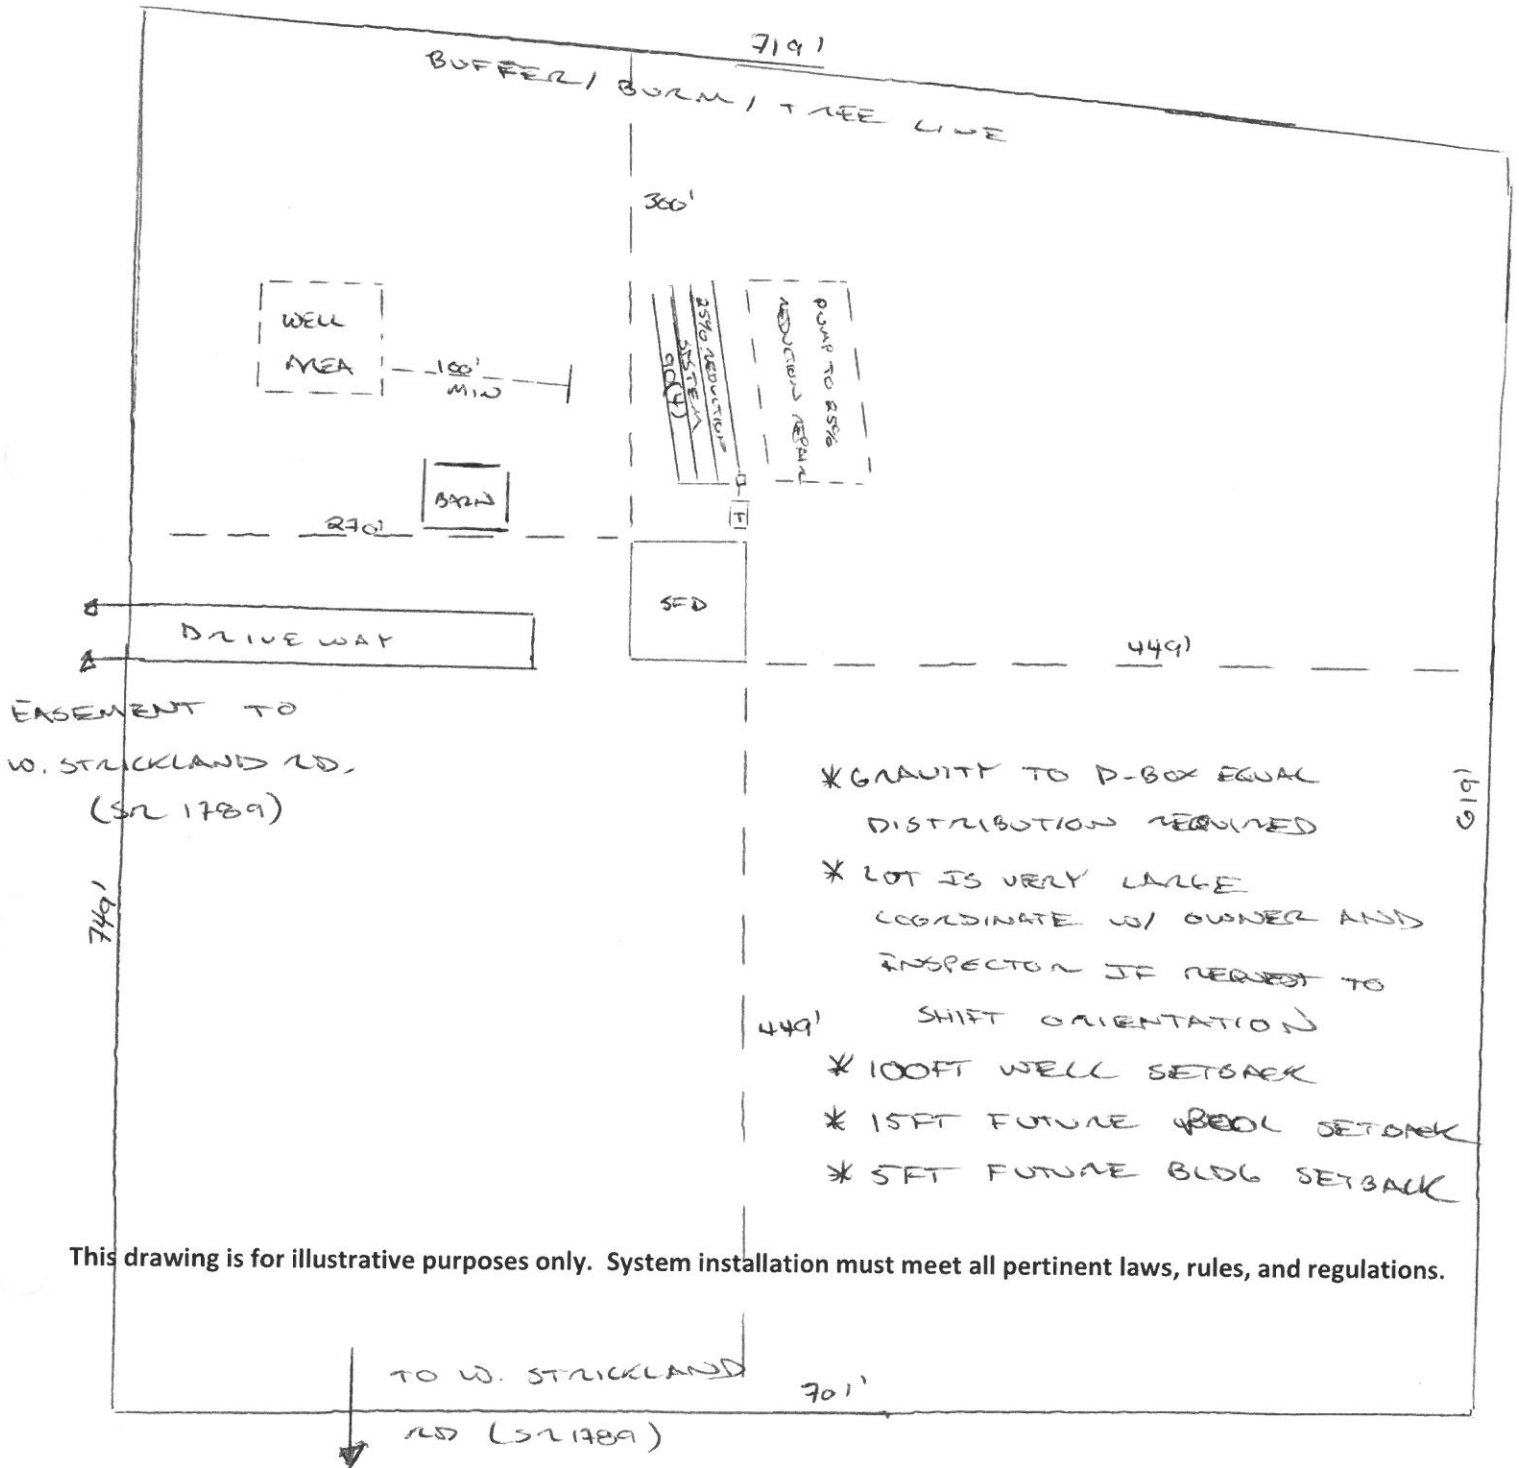 719'
BUFFER/ BURM/ TREE LINE
300'
WELL
AREA
100'
MIN
25% REDUCTION
SYSTEM
90(4)
PUMP TO 25%
REDUCTION REPAIR
BARN
T
270'
SFD
DRIVEWAY
449'
EASEMENT TO
W. STRICKLAND RD.
(SR 1789)
749'
619'
* GRAVITY TO D-BOX EQUAL
DISTRIBUTION REQUIRED
* LOT IS VERY LARGE
COORDINATE W/ OWNER AND
INSPECTOR IF REQUEST TO
SHIFT ORIENTATION
449'
* 100FT WELL SETBACK
* 15FT FUTURE POOL SETBACK
* 5FT FUTURE BLDG SETBACK
This drawing is for illustrative purposes only. System installation must meet all pertinent laws, rules, and regulations.
TO W. STRICKLAND
RD (SR 1789)
701'